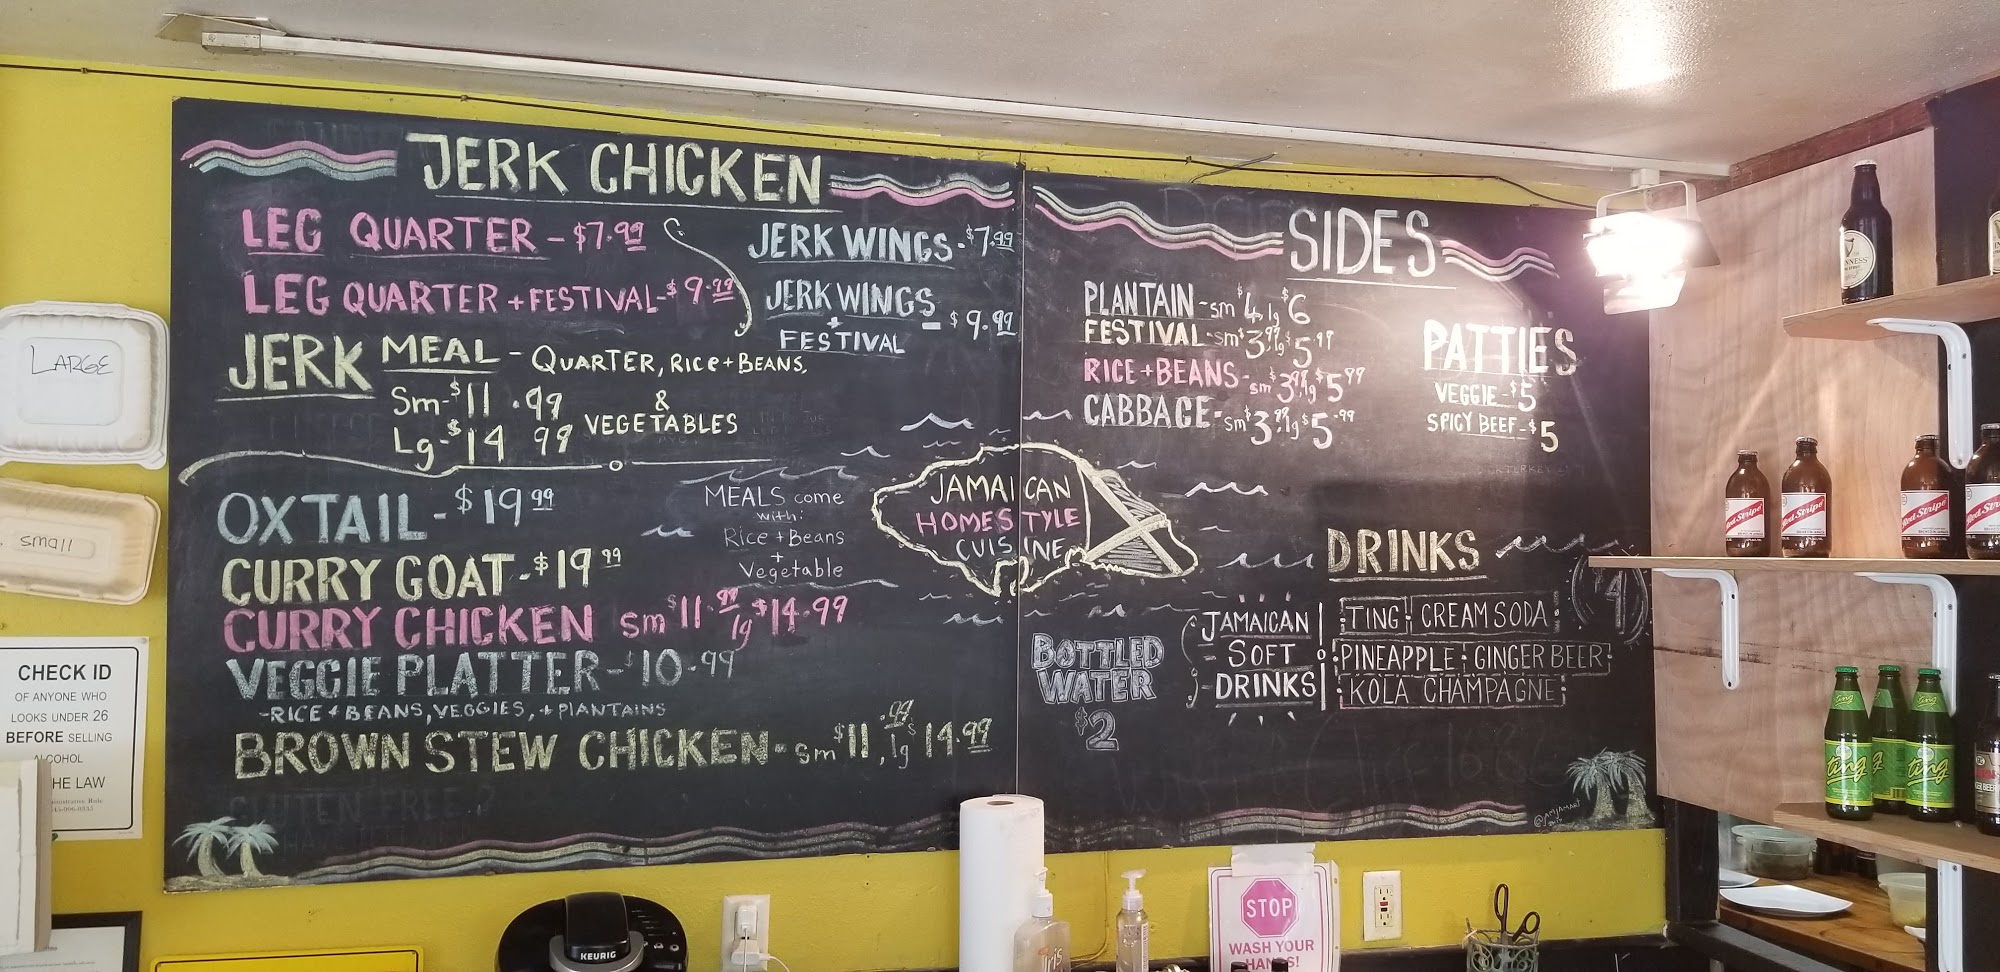 JERK CHICKEN
LEG QUARTER - $7.99
LEG QUARTER + FESTIVAL - $9.99
JERK WINGS - $7.99
JERK WINGS
+
FESTIVAL - $9.99
JERK MEAL - QUARTER, RICE + BEANS,
&
VEGETABLES
Sm - $11.99
Lg - $14 99
OXTAIL - $19.99
CURRY GOAT - $19 99
CURRY CHICKEN sm $11.99 lg $14.99
VEGGIE PLATTER - $10.99
- RICE + BEANS, VEGGIES, + PLANTAINS
BROWN STEW CHICKEN - sm $11.99, lg $14.99
MEALS come
with:
Rice + Beans
+
Vegetable
JAMAICAN
HOMESTYLE
CUISINE
SIDES
PLANTAIN - sm $4, lg $6
FESTIVAL - sm $3.99, lg $5.99
RICE + BEANS - sm $3.99, lg $5.99
CABBAGE - sm $3.99, lg $5.99
PATTIES
VEGGIE - $5
SPICY BEEF - $5
DRINKS
BOTTLED
WATER
$2
JAMAICAN
SOFT
DRINKS
TING CREAM SODA
PINEAPPLE GINGER BEER
KOLA CHAMPAGNE
$4
GLUTEN FREE?
LARGE
small
CHECK ID
OF ANYONE WHO
LOOKS UNDER 26
BEFORE SELLING
ALCOHOL
THE LAW
KEURIG
STOP
WASH YOUR
HANDS!
GUINNESS
Red Stripe
Red Stripe
Red Stripe
Red Stripe
Ting
Ting